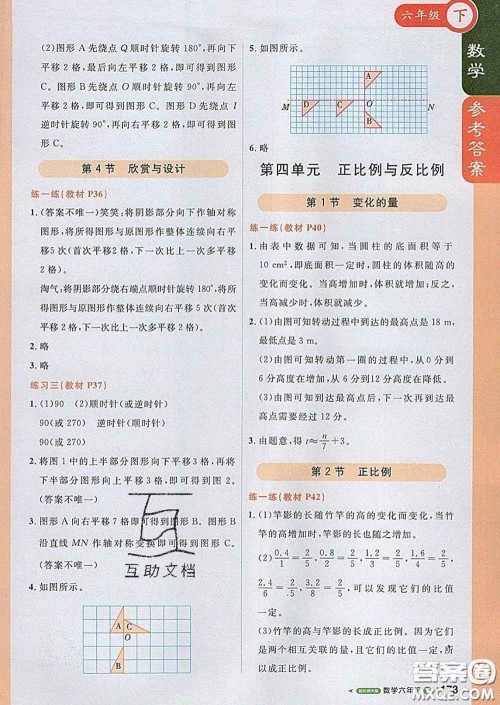 六年级 下
数学
参考答案
(2)图形 A 先绕点 O 顺时针旋转 180°,再向下
平移 2 格,最后向左平移 2 格,即可得到图形
C。图形 A 先绕点 G 顺时针旋转 90°,再向左
平移 2 格,即可得到图形 D。图形 D 先绕点 I
逆时针旋转 90°,再向右平移 2 格,即可得到图
形 A。
第 4 节 欣赏与设计
练一练(教材 P36)
1. (答案不唯一)笑笑:将阴影部分向下作轴对称
图形,得到的图形与原图形作整体连续向右
平移5次(首次平移 2 格,下一次比上一次多平
移 2 格)。
淘气:将阴影部分绕右端点顺时针旋转180°,将
所得图形与原图形作整体连续向右平移 5 次(首
次平移 2 格,下一次比上一次多平移 2 格)。
2. 略
3. 略
练习三(教材 P37)
1. (1)90 (2)顺时针(或逆时针)
90(或 270) 逆时针(或顺时针)
90(或 270)
2. 将图 1 中的上半部分图形向下平移3格,再将
下半部分图形向上平移 3 格,即可得到图 2。
(答案不唯一)
3. 图形 A 向右平移 7 格即可得到图形 B。图形 B
沿直线 MN 作轴对称变换即可得到图形 C。
(答案不唯一)
4. 如图所示。
A
C
O
互助文档
5. 如图所示。
A
M D C O N
B
6. 略
第四单元 正比例与反比例
第 1 节 变化的量
练一练(教材 P40)
1. 由表中数据可知,当圆柱的底面积等于
10 cm²,即底面积一定时,圆柱的体积随高的
变化而变化。当高增加时,体积增加;反之,
当高减少时,体积减小。
2. (1)由图可知转动过程中到达的最高点是 18 m,
最低点是 3 m。
(2)由图可知转动第一圈的过程中,从 0 分到
6 分高度在增加,从 6 分到 12 分高度在降低。
(3)由图可知到达最高点后,下一次再到达最
高点需要经过 12 分。
3. 由题意,得 t≈n/7+3。
第 2 节 正比例
练一练(教材 P42)
1. (1)竹竿的影长随竹竿的高的变化而变化,当竹
竿的高增加时,竹竿的影长也随之增加。
(2) 0.4/1=2/5, 0.8/2=2/5, 1.2/3=2/5, 1.6/4=2/5,
2.4/6=2/5, 3.2/8=2/5,可以发现它们的比值
一定。
(3)竹竿的高与竹竿的影长成正比例。因为是
两个相互关联的量,且它们的比值一定,所以
成正比例。
数学六年下
173
答案圈